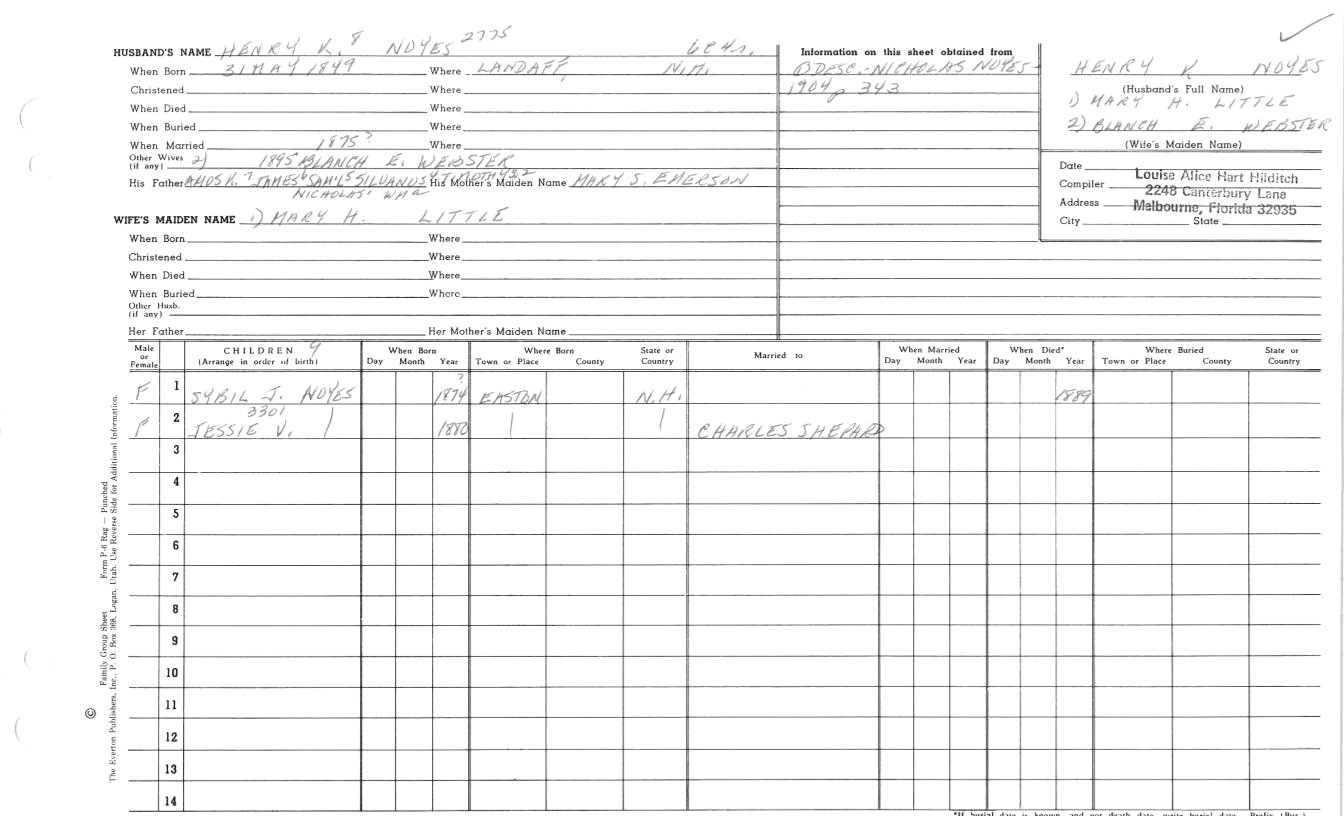 HUSBAND'S NAME HENRY K. 8 NOYES 2775
When Born 31 MAY 1849 Where LANDAFF, N.H.
Christened Where
When Died Where
When Buried Where
When Married 1875? Where
Other Wives (if any) 2) 1895 BLANCH E. WEBSTER
His Father AMOS K. 7 JAMES 6 SAM'L 5 SILVANUS 4 TIMOTHY 3 2 His Mother's Maiden Name MARY S. EMERSON
NICHOLAS' WMa
WIFE'S MAIDEN NAME 1) MARY H. LITTLE
When Born Where
Christened Where
When Died Where
When Buried Where
Other Husb. (if any)
Her Father Her Mother's Maiden Name
Information on this sheet obtained from
DESC.-NICHOLAS NOYES-
1904 p 343
HENRY K NOYES
(Husband's Full Name)
1) MARY H. LITTLE
2) BLANCH E. WEBSTER
(Wife's Maiden Name)
Date
Compiler Louise Alice Hart Hilditch
Address 2248 Canterbury Lane
Melbourne, Florida 32935
City State
Male or Female CHILDREN 9 (Arrange in order of birth) When Born Day Month Year Where Born Town or Place County State or Country Married to When Married Day Month Year When Died* Day Month Year Where Buried Town or Place County State or Country
F 1 SYBIL J. NOYES 1874 ? EASTON N.H. 1889
F 2 3301 JESSIE V. | 1880 | | CHARLES SHEPARD
3
4
5
6
7
8
9
10
11
12
13
14
*If burial date is known, and not death date, write burial date
© Family Group Sheet Form P-6 Rag — Punched
The Everton Publishers, Inc., P. O. Box 368, Logan, Utah. Use Reverse Side for Additional Information.